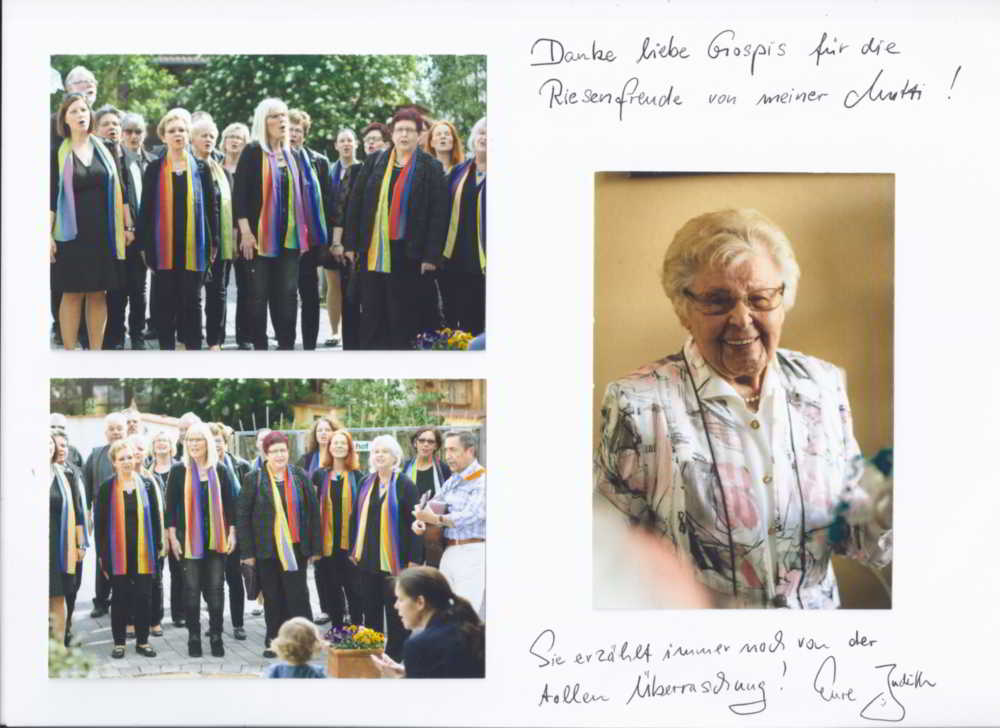 Danke liebe Gospis für die
Riesenfreude von meiner Mutti!
hof
Sie erzählt immer noch von der
tollen Überraschung! Eure Judith